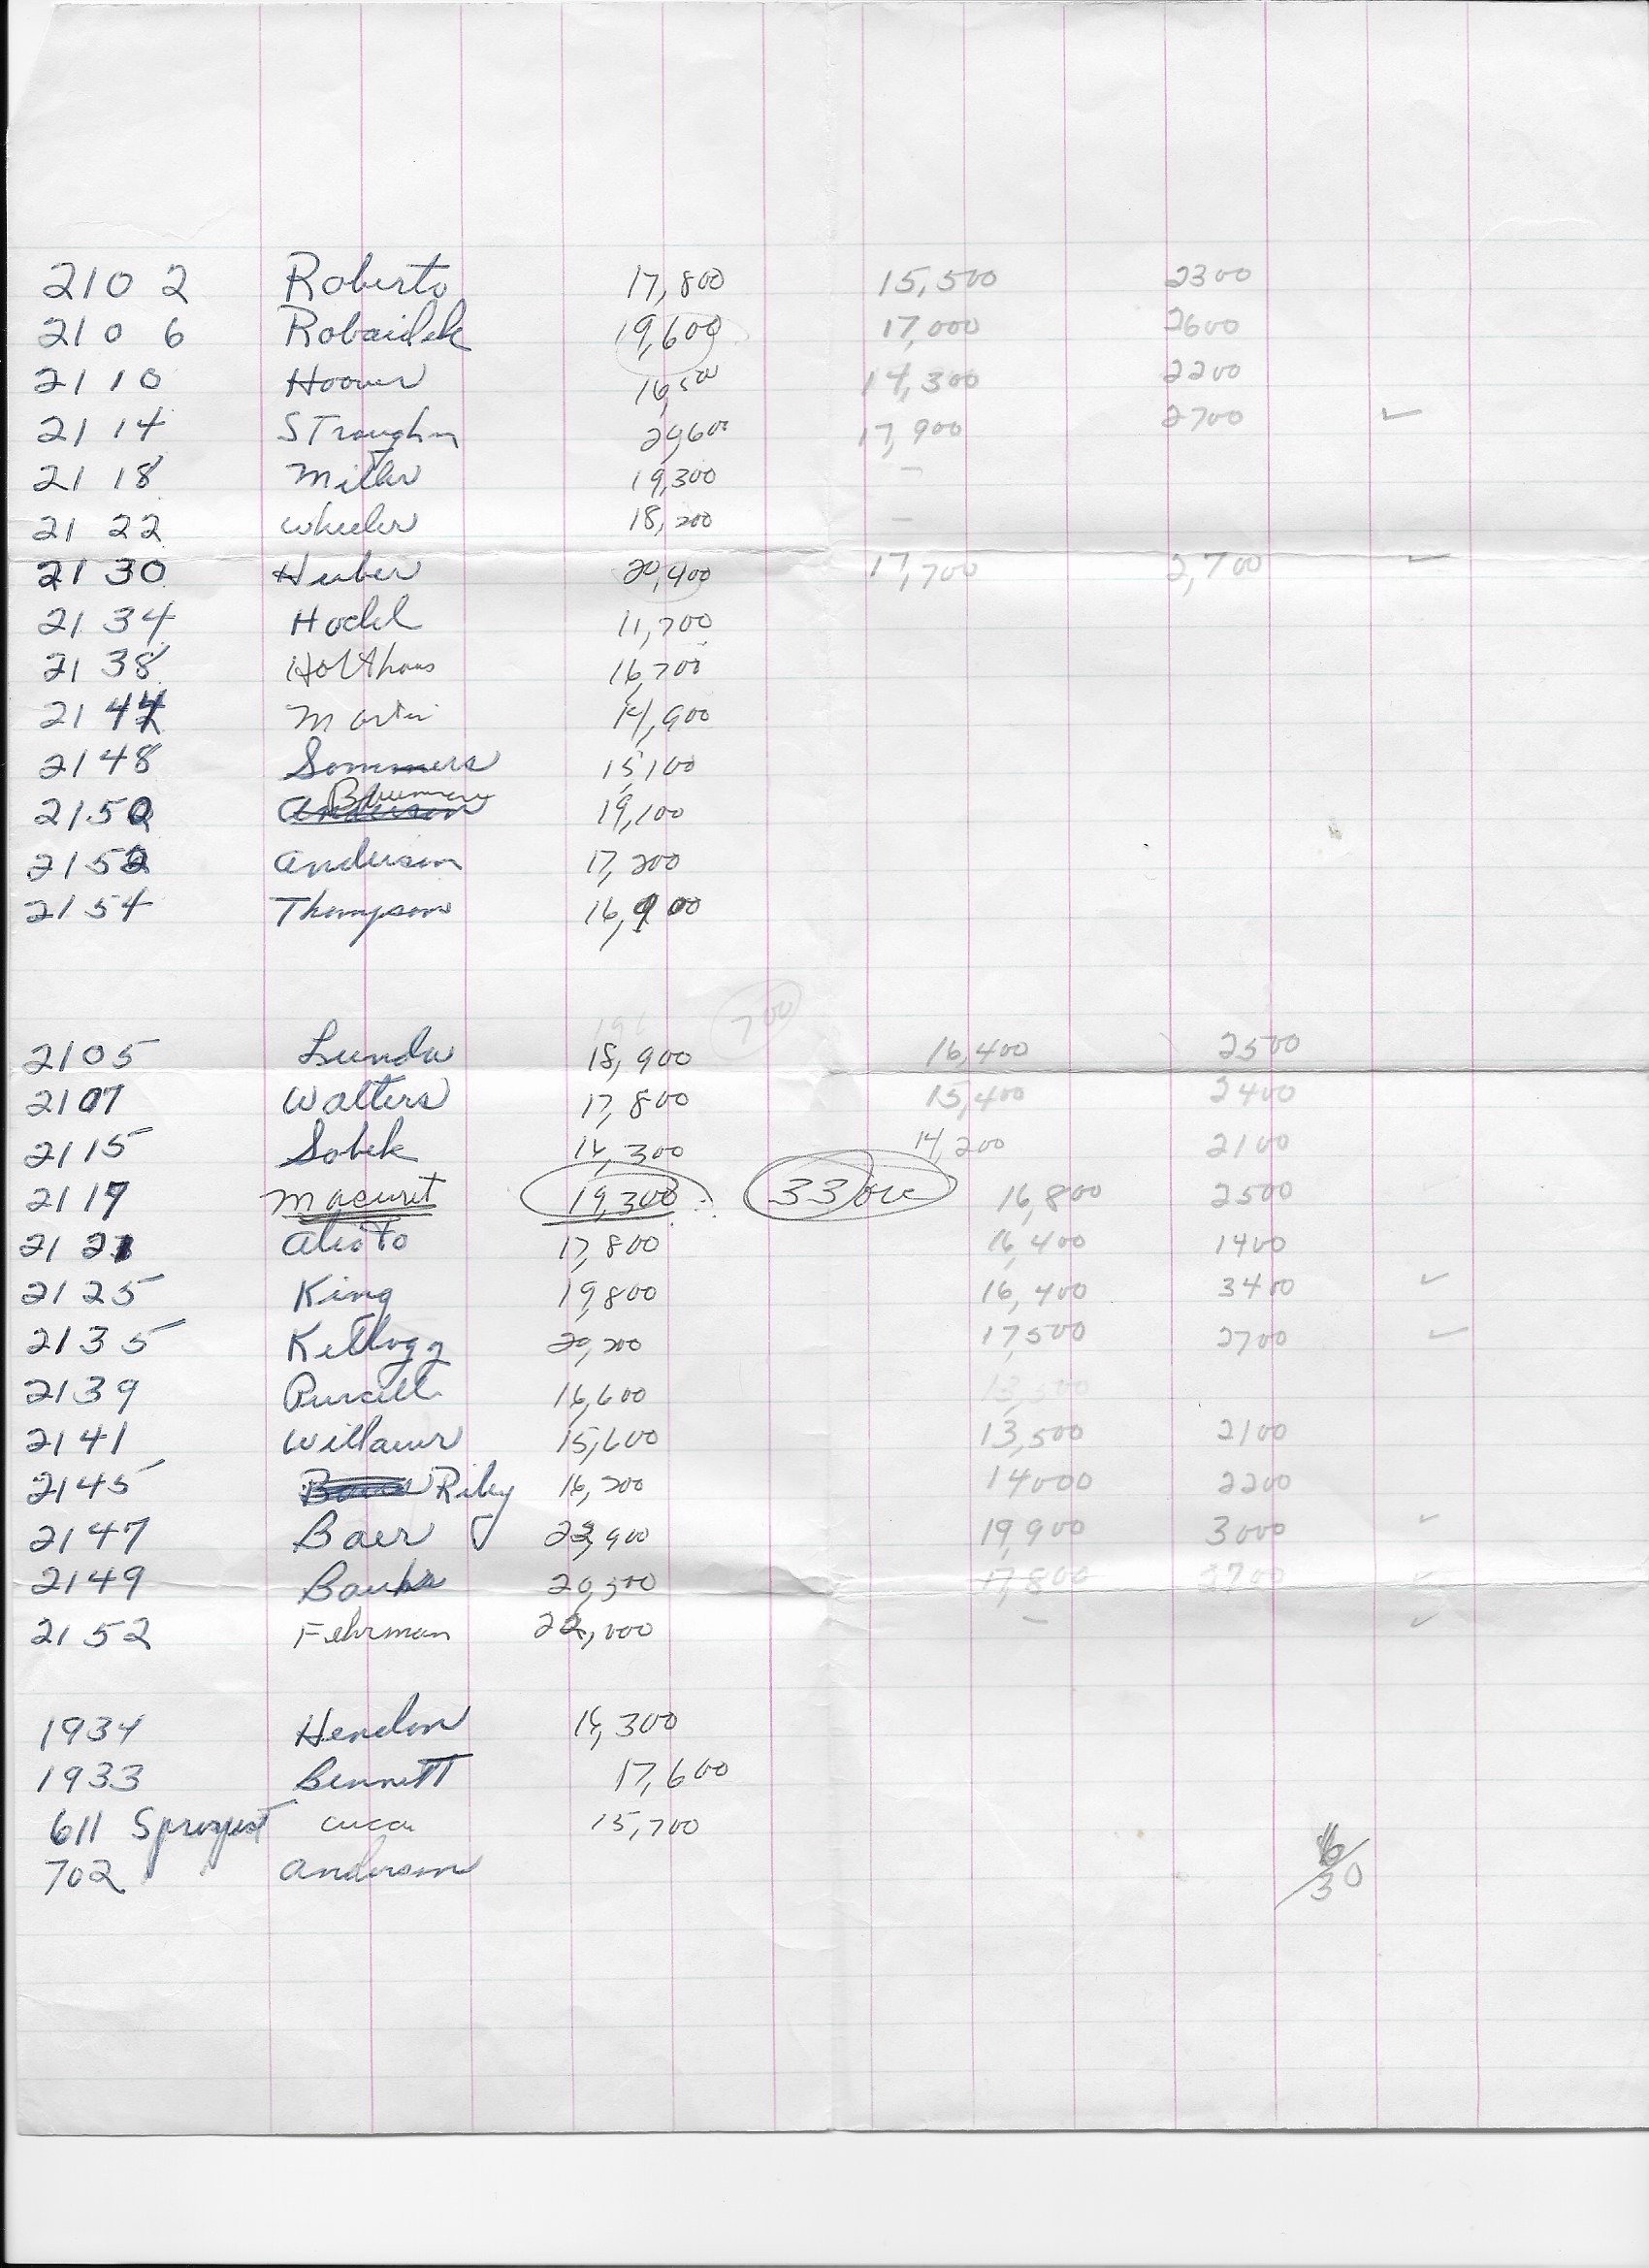 2102 Roberts 17,800 15,500 2300
2106 Robaidek 19,600 17,000 2600
2110 Hoover 16,500 14,300 2200
2114 STraughn 20,600 17,900 2700 ✓
2118 Miller 19,300 –
2122 Wheeler 18,200 –
2130 Huber 20,400 17,700 2,700 ✓
2134 Hodel 11,700
2138 Holthaus 16,700
2144 Martin 14,900
2148 Sommers 15,100
2150 Anderson 19,100
2152 Anderson 17,200
2154 Thompson 16,900
700
2105 18,900 16,400 2500
2107 Walters 17,800 15,400 2400
2115 Sobek 16,300 14,200 2100
2119 19,300 33 16,800 2500
2121 Alioto 17,800 16,400 1400
2125 King 19,800 16,400 3400 ✓
2135 Kellogg 20,200 17,500 2700 ✓
2139 Purcell 16,600
2141 15,600 13,500 2100
2145 Riley 16,200 14000 2200
2147 Baer 22,900 19,900 3000 ✓
2149 Banks 20,500 17,800 2700 ✓
2152 Fehrman 22,000 – ✓
1934 Hendon 300
1933 BennetT 17,600
611 15,700
702 Anderson
30